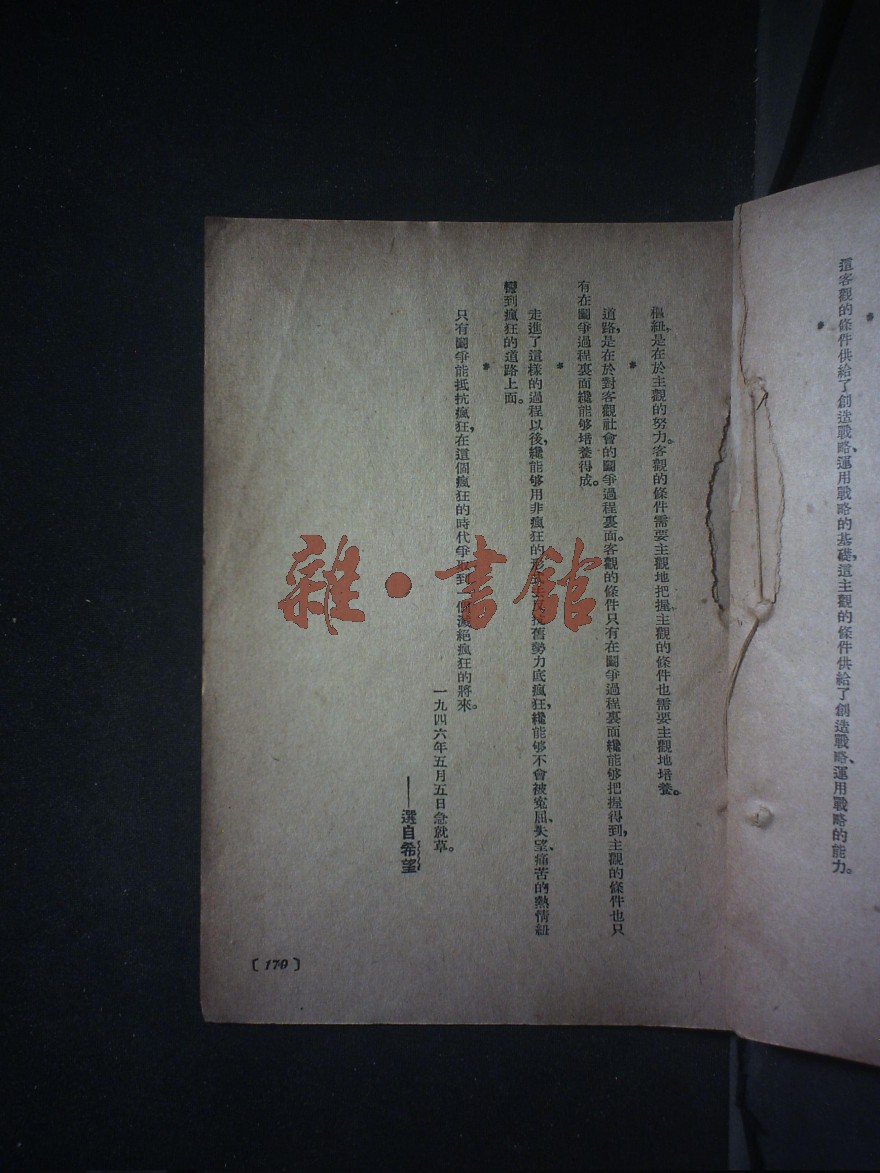 這客觀的條件供給了創造戰略、運用戰略的基礎,這主觀的條件供給了創造戰略、運用戰略的能力。
*
樞紐,是在於主觀的努力。客觀的條件需要主觀地把握,主觀的條件也需要主觀地培養。
*
道路,是在於對客觀社會的鬭爭過程裏面。客觀的條件只有在鬭爭過程裏面纔能够把握得到,主觀的條件也只
有在鬭爭過程裏面纔能够培養得成。
*
走進了這樣的過程以後,纔能够用非瘋狂的形式去反抗舊勢力底瘋狂,纔能够不會被寃屈、失望、痛苦的熱情紐
到瘋狂的道路上面。
*
只有鬭爭能抵抗瘋狂,在這個瘋狂的時代爭取到一個滅絕瘋狂的將來。
一九四六年五月五日急就草。
——選自希望
〔170〕
雜·書館